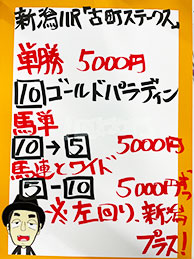 新潟11R「古町ステークス」
単勝 5000円
10 ゴールドパラディン
馬単
10→5 5000円
馬連とワイド
5-10 5000円ずつ
※左回り、新潟
プラス!